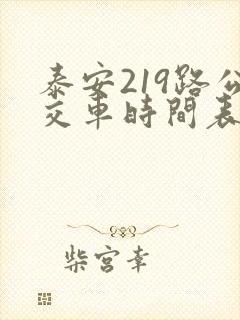 泰安219路公
交車時間表
柴宮幸